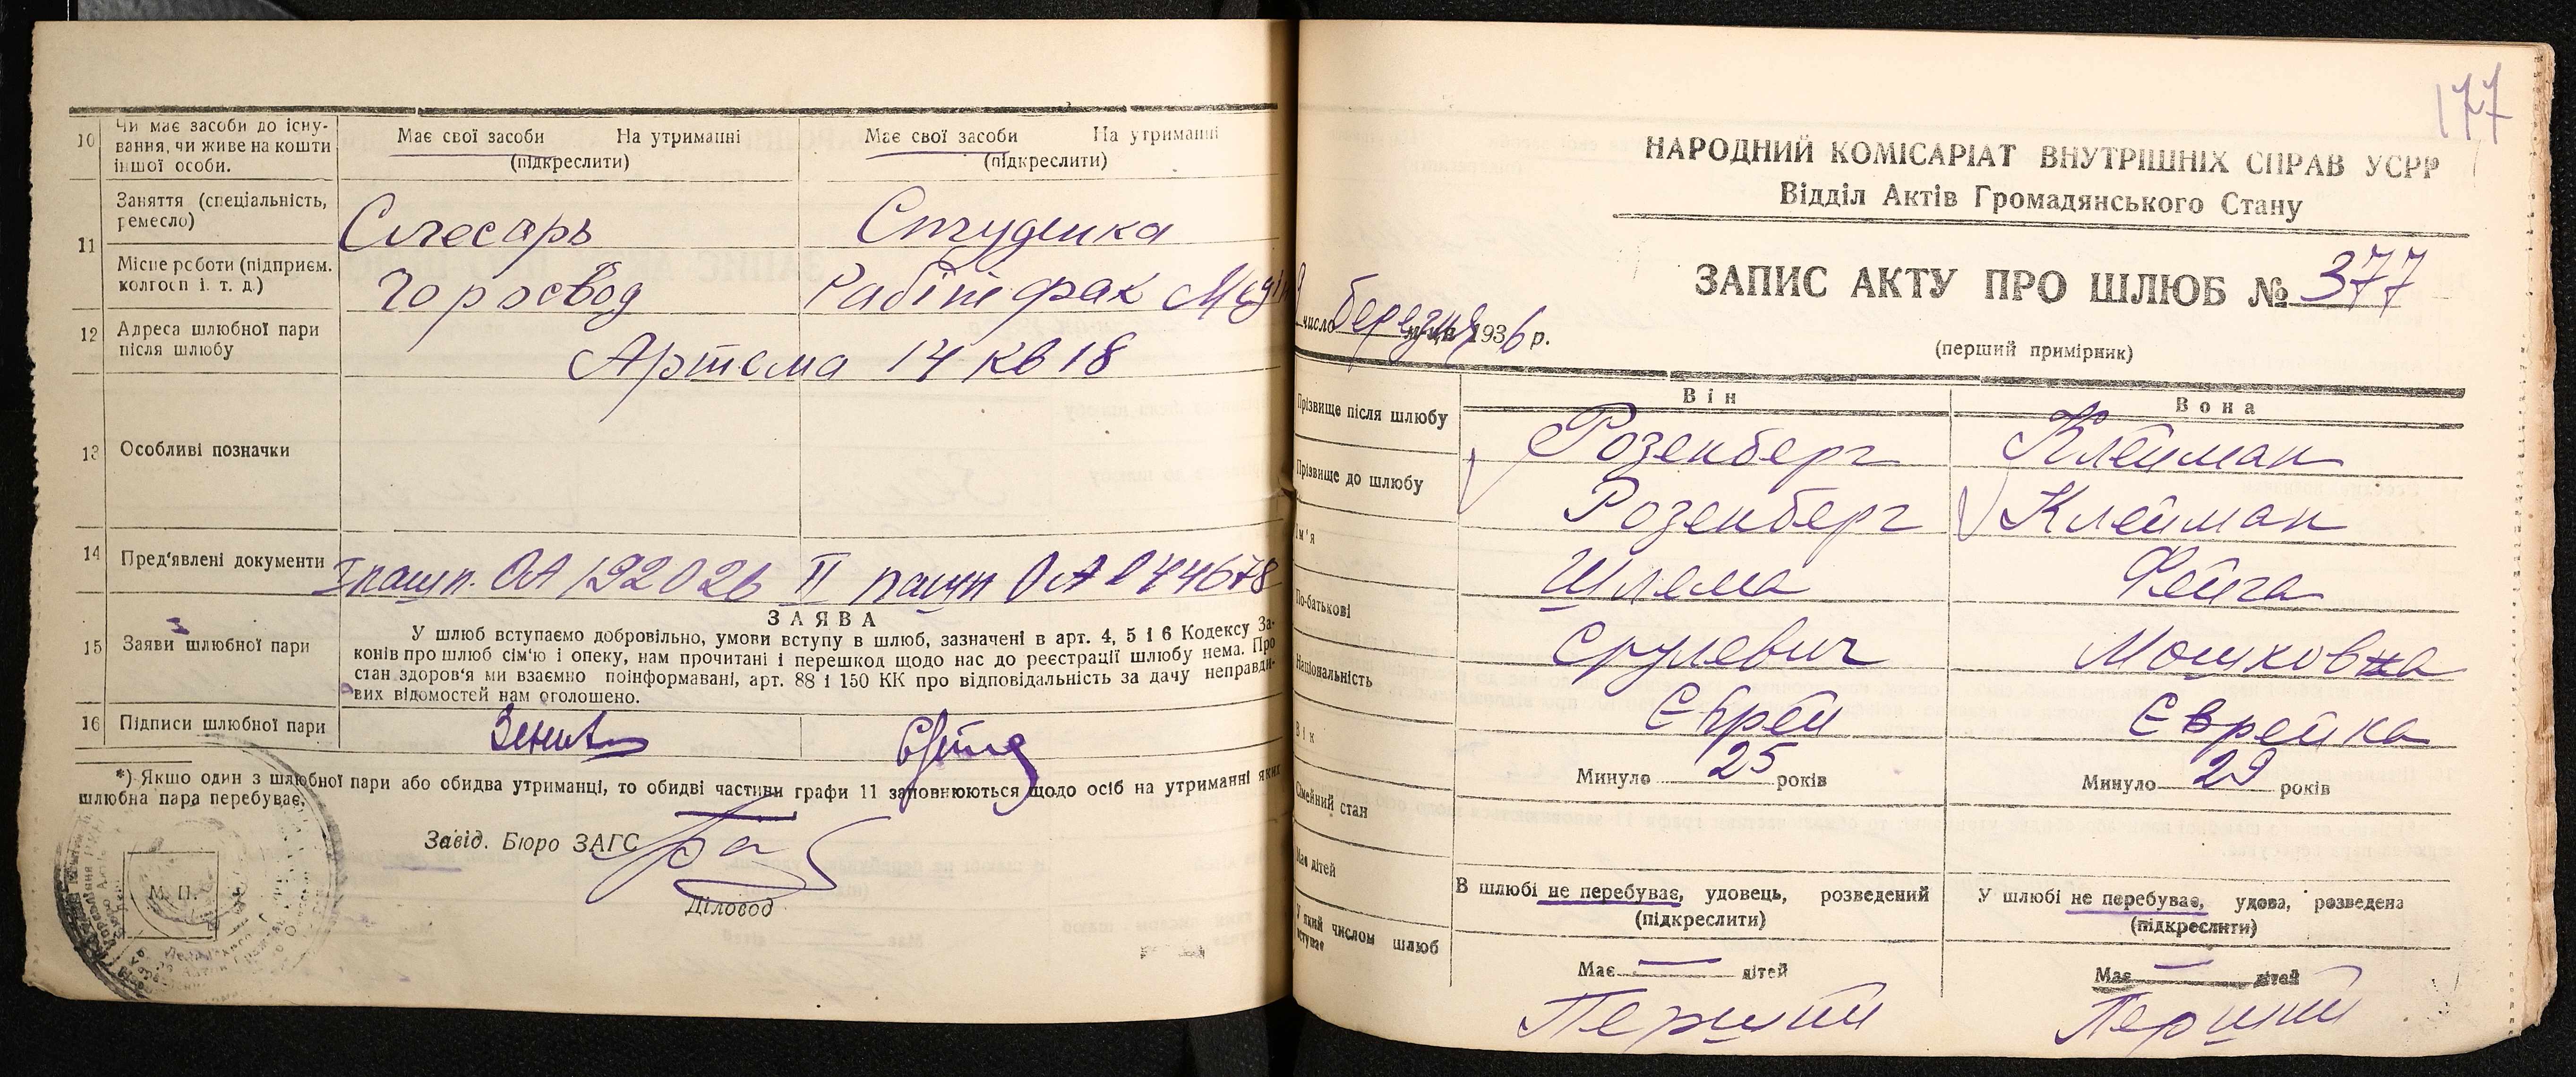 10 Чи має засоби до існу-
вання, чи живе на кошти
іншої особи.
Має свої засоби На утриманні
(підкреслити)
Має свої засоби На утриманні
(підкреслити)
11 Заняття (спеціальність,
ремесло)
Слесарь
Студентка
Місце роботи (підприєм.
колгосп і. т. д.)
Горосвод
Рабітфак
12 Адреса шлюбної пари
після шлюбу
Артема 14 кв 18
13 Особливі позначки
14 Пред'явлені документи
I пашп. ОА 192026 II пашп ОА
15 Заяви шлюбної пари
ЗАЯВА
У шлюб вступаємо добровільно, умови вступу в шлюб, зазначені в арт. 4, 5 і 6 Кодексу За-
конів про шлюб сім'ю і опеку, нам прочитані і перешкод щодо нас до реєстрації шлюбу нема. Про
стан здоров'я ми взаємно поінформавані, арт. 88 і 150 КК про відповідальність за дачу неправди-
вих відомостей нам оголошено.
16 Підписи шлюбної пари
*) Якщо один з шлюбної пари або обидва утриманці, то обидві частини графи 11 заповнюються щодо осіб на утриманні яких
шлюбна пара перебуває.
Завід. Бюро ЗАГС
Діловод
М. П.
177
НАРОДНИЙ КОМІСАРІАТ ВНУТРІШНІХ СПРАВ УСРР
Відділ Актів Громадянського Стану
ЗАПИС АКТУ ПРО ШЛЮБ № 377
число березня м-ця 1936 р.
(перший примірник)
Він
Вона
Прізвище після шлюбу
Розенберг
Клейман
Прізвище до шлюбу
Розенберг
Клейман
Ім'я
Шлема
Фейга
По-батькові
Срулевич
Мошковна
Національність
Єврей
Єврейка
Вік
Минуло 25 років
Минуло 29 років
Сімейний стан
В шлюбі не перебуває, удовець, розведений
(підкреслити)
У шлюбі не перебуває, удова, розведена
(підкреслити)
Має дітей
Має — дітей
Має — дітей
У який числом шлюб
вступає
Перший
Перший